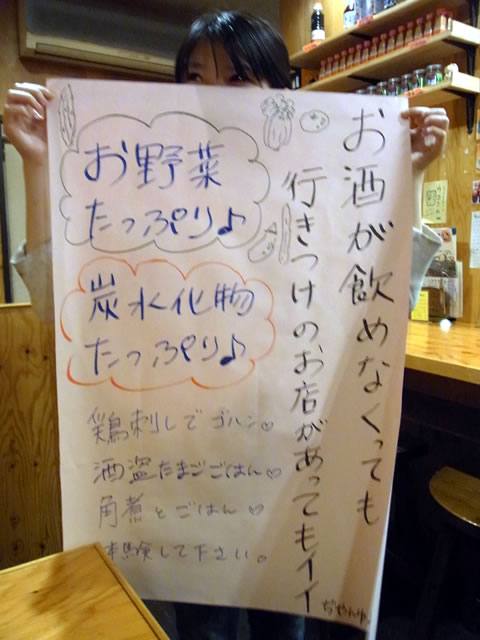 お酒が飲めなくっても
行きつけのお店があってもイイ
お野菜
たっぷり♪
炭水化物
たっぷり♪
鶏刺しでゴハン♡
酒盗たまごごはん♡
角煮とごはん♡
体験して下さい。